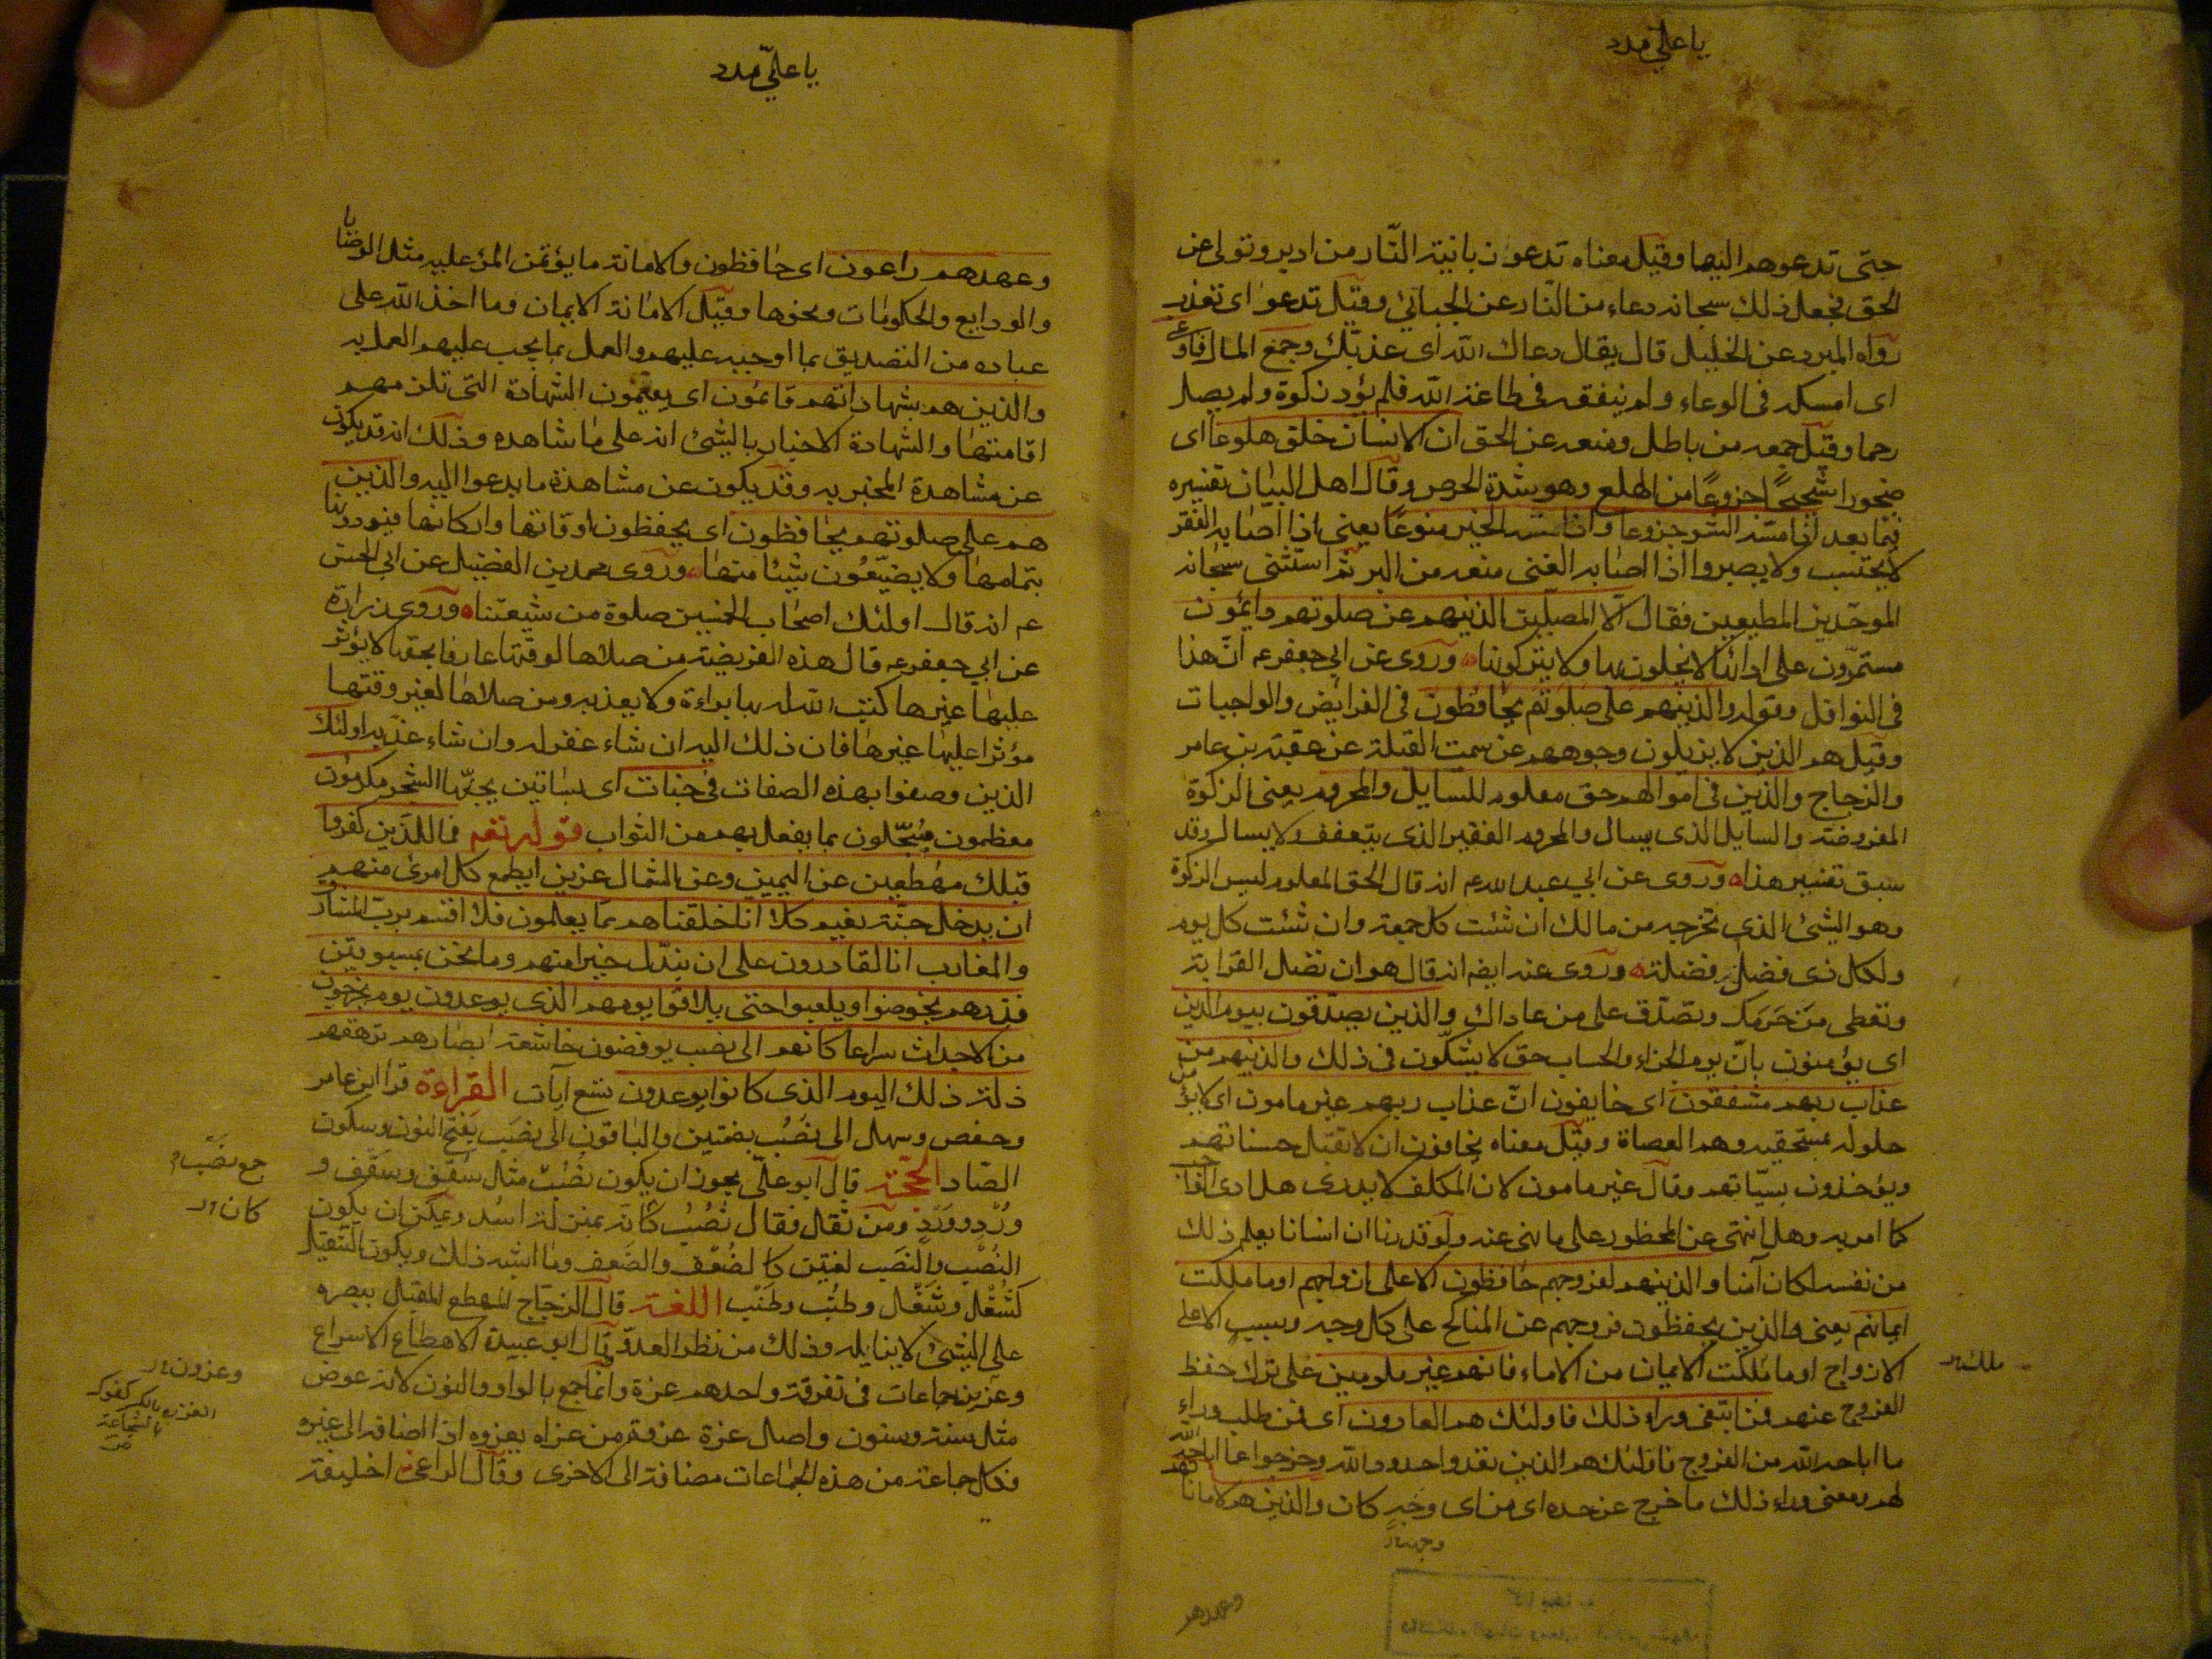 يا علي مدد
حتى تدعوهم اليها وقيل معناه تدعو زبانية النّار من ادبر وتولى عن
الحق فجعل ذلك سبحانه دعاء من النّار عن الجبائي وقيل تدعوا اى تعذب
رواه المبرد عن الخليل قال يقال دعاك الله اى عذبك وجمع المال فاوعى
اى امسكه فى الوعاء ولم ينفقه فى طاعة الله فلم يؤد زكوة ولم يصل
رحما وقيل جمعه من باطل ومنعه عن الحق ان الانسان خلق هلوعا اى
ضجورا شحيحًا جزوعًا من الهلع وهو شدة الحرص وقال اهل البيان تفسيره
فيما بعد اذا مسّه الشر جزوعا واذا مسه الخير منوعًا يعنى اذا اصابه الفقر
لا يحتسب ولا يصبر واذا اصابه الغنى منعه من البر ثم استثنى سبحانه
الموحّدين المطيعين فقال الّا المصلّين الذينهم عن صلوتهم دائمون
مستمرّون على ادائها لا يخلون بها ولا يتركونها وروى عن ابي جعفر عم انّ هذا
فى النوافل وقوله والذينهم على صلوتهم يحافظون فى الفرايض والواجبات
وقيل هم الذين لا يزيلون وجوههم عن سمت القبلة عن عقبة بن عامر
والزجاج والذين فى اموالهم حق معلوم للسّايل والمحروم يعنى الزكوة
المفروضة والسايل الذى يسال والمحروم الفقير الذى يتعفف ولا يسال وقد
سبق تفسير هذا وروى عن ابي عبد الله عم انه قال الحق المعلوم ليس الزكوة
وهو الشئ الذى تخرجه من مالك ان شئت كل جمعة وان شئت كل يوم
ولكل ذى فضل فضله وروى عنه ايضه انه قال هو ان تصل القرابة
وتعطى من حرمك وتصدّق على من عاداك والذين يصدّقون بيوم الدين
اى يؤمنون بانّ يوم الجزاء والحساب حق لا يشكّون فى ذلك والذينهم من
عذاب ربهم مشفقون اى خايفون انّ عذاب ربهم غير مامون اى لا يؤمن
حلوله بمستحقيه وهم العصاة وقيل معناه يخافون ان لا تقبل حسناتهم
ويؤخذون بسيّاتهم وقال غير مامون لان المكلف لا يدرى هل ادى الواجب
كما امر به وهل انتهى عن المحظور على ما نهى عنه ولو قدرنا ان انسانا يعلم ذلك
من نفسه لكان آمنا والذينهم لفروجهم حافظون الا على ازواجهم او ما ملكت
ايمانهم يعنى والذين يحفظون فروجهم عن المناكح على كل وجه وسبب الا على
الازواج او ما ملكت الايمان من الاماء فانهم غير ملومين على ترك حفظ
ملك
الفروج عنهم فمن ابتغى وراء ذلك فاولئك هم العادون اى فمن طلب وراء
ما اباحه الله من الفروج فاولئك هم الذين تعدوا حدود الله وخرجوا عما اباحه الله
لهم ومعنى وراء ذلك ما خرج عن حده اى من اى وجه كان والذين هم لاماناتهم
وعهدهم
يا علي مدد
وعهدهم راعون اى حافظون والامانة ما يؤتمن المرء عليه مثل الوصايا
والودايع والحكومات ونحوها وقيل الامانة الايمان وما اخذ الله على
عباده من التصديق بما اوجبه عليهم والعمل بما يجب عليهم العمل به
والذين هم بشهاداتهم قائمون اى يقيمون الشهادة التى تلزمهم
اقامتها والشهادة الاخبار بالشئ انه على ما شاهده وذلك انه قد يكون
عن مشاهدة المخبر به وقد يكون عن مشاهدة ما يدعوا اليه والذين
هم على صلوتهم يحافظون اى يحفظون اوقاتها واركانها فيؤدونها
بتمامها ولا يضيّعون شيئا منها وروى محمد بن الفضيل عن ابي الحسن
عم انه قال اولئك اصحاب الخمسين صلوة من شيعتنا وروى زرارة
عن ابي جعفر عم قال هذه الفريضة من صلاها لوقتها عارفا بحقها لا يؤثر
عليها غيرها كتب الله له بها براءة ولا يعذبه ومن صلاها لغير وقتها
مؤثرا عليها غيرها فان ذلك اليه ان شاء غفر له وان شاء عذّبه اولئك
الذين وصفوا بهذه الصفات فى جنات اى بساتين يجنّها الشجر مكرمون
معظمون مبجّلون بما يفعل بهم من الثواب قوله تعم فما للذين كفروا
قبلك مهطعين عن اليمين وعن الشمال عزين ايطمع كل امرئ منهم
ان يدخل جنّة نعيم كلا انا خلقناهم مما يعلمون فلا اقسم بربّ المشارق
والمغارب انا لقادرون على ان نبدّل خيرا منهم وما نحن بمسبوقين
فذرهم يخوضوا ويلعبوا حتى يلاقوا يومهم الذى يوعدون يوم يخرجون
من الاجداث سراعا كانهم الى نصب يوفضون خاشعة ابصارهم ترهقهم
ذلة ذلك اليوم الذى كانوا يوعدون تسع آيات القراءة قرأ ابن عامر
وحفص وسهل الى نُصُب بضمتين والباقون الى نصب بفتح النون وسكون
الصّاد الحجّة قال ابو علىّ يجوز ان يكون نُصُب مثل سُقُف وسَقْف و
جمع نصب
وُرُد ووَرْد ومن ثقّل فقال نُصُب كان بمنزلة اسد ويمكن ان يكون
كان
النُصْب والنَصب لغتين كالضُعف والضَعف وما اشبه ذلك ويكون التثقيل
كشُغْل وشَغْل وطُنُب وطُنْب اللغة قال الزجاج المهطع المقبل ببصره
على الشئ لا يزايله وذلك من نظر العدوّ وقال ابو عبيدة الاهطاع الاسراع
وعزين جماعات فى تفرقة واحدهم عزة وانّما جمع بالواو والنون لانه عوض
وعزون
مثل سنة وسنون واصل عزة عزوة من عزاه يعزوه اذا اضافه الى غيره
فكل جماعة من هذه الجماعات مضافة الى الاخرى وقال الراعى اخليفة